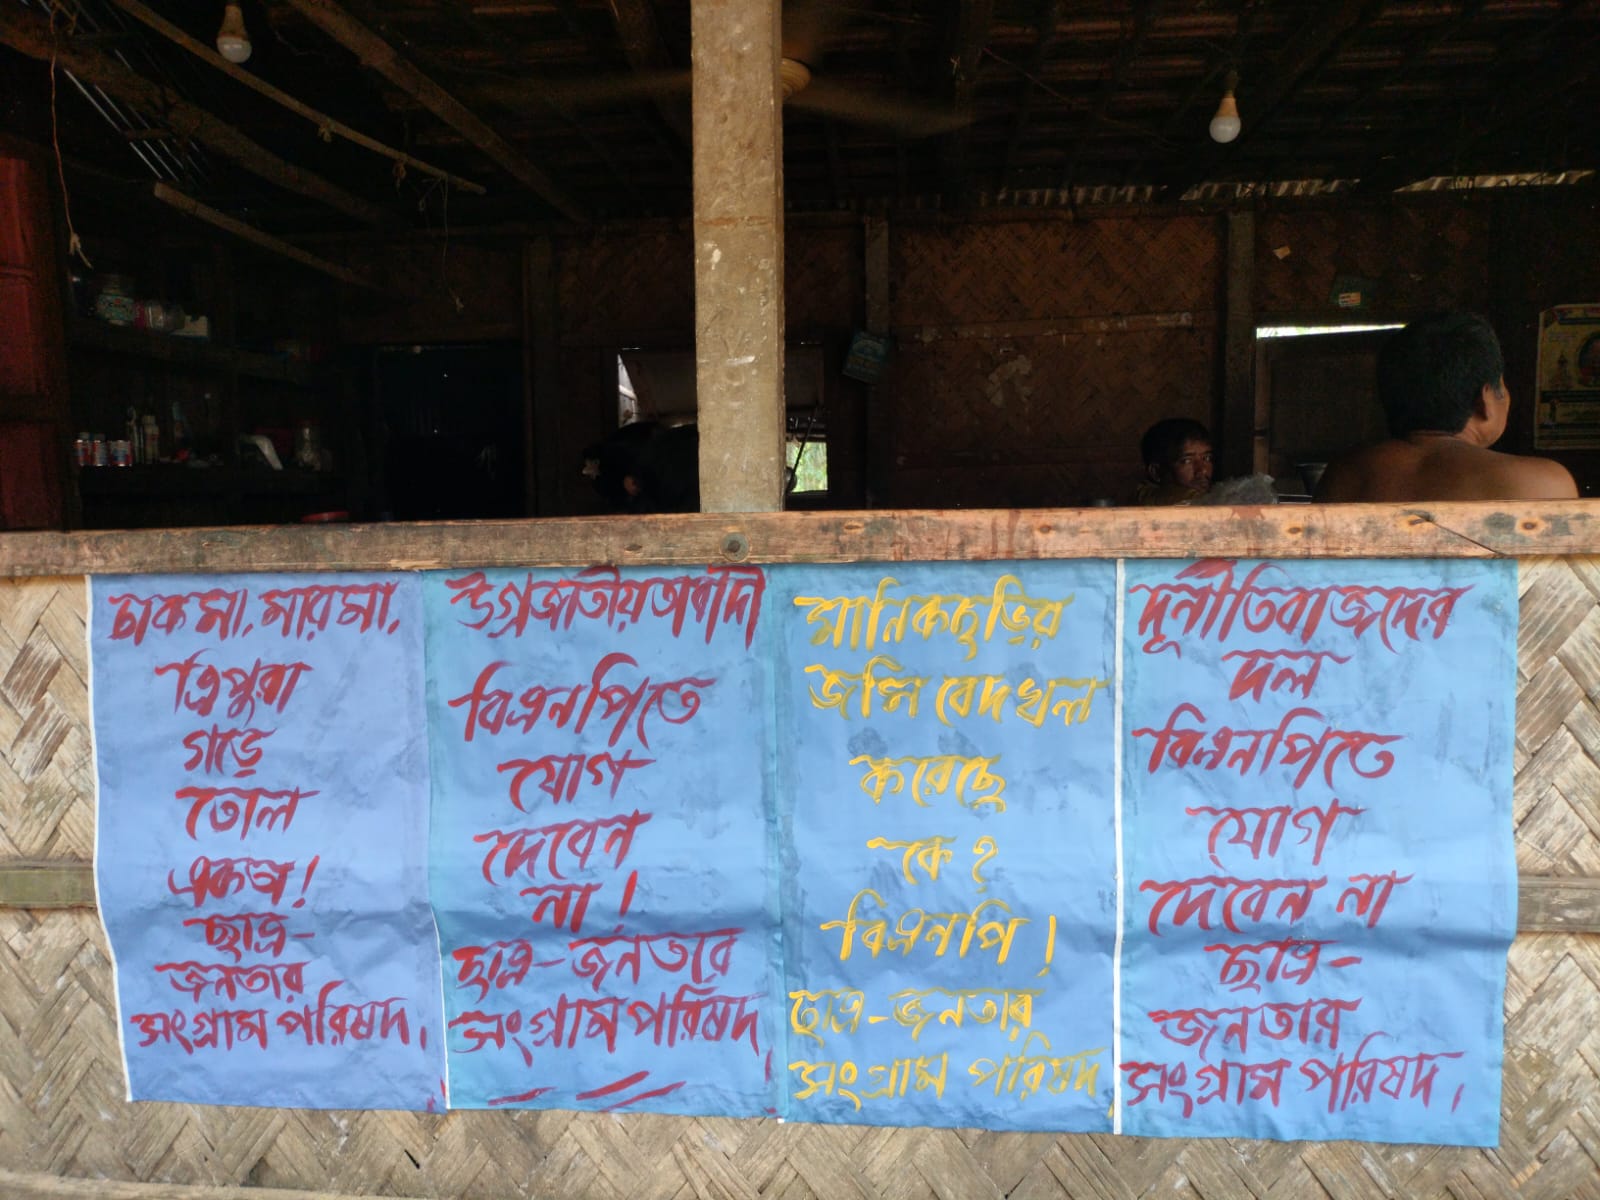 চাকমা, মারমা,
ত্রিপুরা
গড়ে
তোল
একতা!
ছাত্র-
জনতার
সংগ্রাম পরিষদ।
উগ্রজাতীয়তাবাদী
বিএনপিতে
যোগ
দেবেন
না!
ছাত্র-জনতার
সংগ্রাম পরিষদ।
মানিকছড়ির
জমি বেদখল
করেছে
কে?
বিএনপি!
ছাত্র-জনতার
সংগ্রাম পরিষদ।
দূর্নীতিবাজদের
দল
বিএনপিতে
যোগ
দেবেন না
ছাত্র-
জনতার
সংগ্রাম পরিষদ।